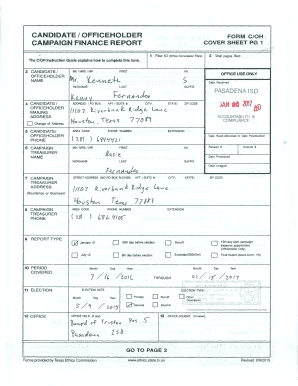 CANDIDATE / OFFICEHOLDER
CAMPAIGN FINANCE REPORT
FORM C/OH
COVER SHEET PG 1
The C/OH Instruction Guide explains how to complete this form.
1 Filer ID (Ethics Commission Filers)
2 Total pages filed:
3 CANDIDATE / OFFICEHOLDER NAME
MS / MRS / MR FIRST MI
Kenneth S
NICKNAME LAST SUFFIX
Kenny Fernandez
OFFICE USE ONLY
Date Received
PASADENA ISD
ACCOUNTABILITY & COMPLIANCE
4 CANDIDATE / OFFICEHOLDER MAILING ADDRESS
Change of Address
ADDRESS / PO BOX; APT / SUITE #; CITY; STATE; ZIP CODE
11107 Riverbank Ridge Lane
Houston, Texas 77089
5 CANDIDATE/ OFFICEHOLDER PHONE
AREA CODE PHONE NUMBER EXTENSION
(281)
Date Hand-delivered or Date Postmarked
6 CAMPAIGN TREASURER NAME
MS / MRS / MR FIRST MI
Rosie
NICKNAME LAST SUFFIX
Fernandez
Receipt # Amount $
Date Processed
Date Imaged
7 CAMPAIGN TREASURER ADDRESS
(Residence or Business)
STREET ADDRESS (NO PO BOX PLEASE); APT / SUITE #; CITY; STATE; ZIP CODE
11107 Riverbank Ridge Lane
Houston Texas 77089
8 CAMPAIGN TREASURER PHONE
AREA CODE PHONE NUMBER EXTENSION
(281)
9 REPORT TYPE
January 15
30th day before election
Runoff
15th day after campaign treasurer appointment (Officeholder Only)
July 15
8th day before election
Exceeded $500 limit
Final Report (Attach C/OH - FR)
10 PERIOD COVERED
Month Day Year
7 / 16 / 2016
THROUGH
Month Day Year
01 / 15 / 2017
11 ELECTION
ELECTION DATE
Month Day Year
5 / 9 / 2015
ELECTION TYPE
Primary
Runoff
Other
Description
General
Special
12 OFFICE
OFFICE HELD (if any)
Board of Trustee Pos. 5
Pasadena ISD
13 OFFICE SOUGHT (if known)
GO TO PAGE 2
Forms provided by Texas Ethics Commission
www.ethics.state.tx.us